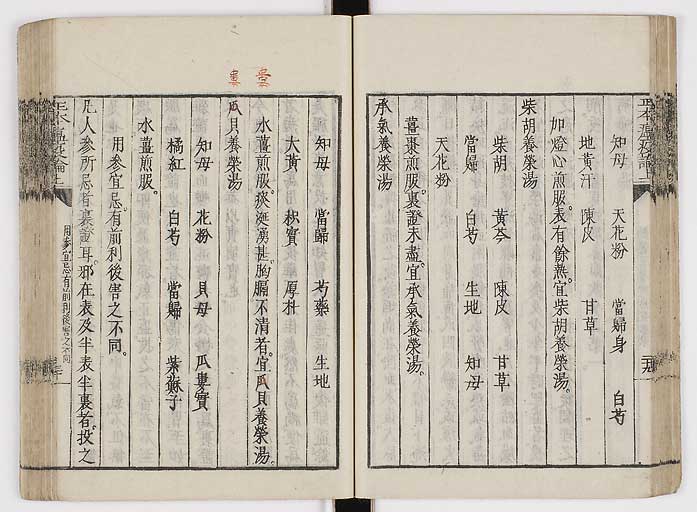 知母　天花粉　當歸身　白芍
地黃汁　陳皮　甘草
加燈心煎服。表有餘熱。宜柴胡養榮湯。
柴胡養榮湯
柴胡　黃芩　陳皮　甘草
當歸　白芍　生地　知母
天花粉
薑棗煎服。裏證未盡。宜承氣養榮湯。
承氣養榮湯
知母　當歸　芍藥　生地
大黃　枳實　厚朴
水薑煎服。痰涎湧甚。胸膈不清者。宜瓜貝養榮湯。
瓜貝養榮湯
知母　花粉　貝母　瓜蔞實
橘紅　白芍　當歸　紫蘇子
水薑煎服。
用參宜忌有前利後害之不同。
凡人參所忌者裏證耳。邪在表及半表半裏者。投之
用參宜忌有前利後害之不同